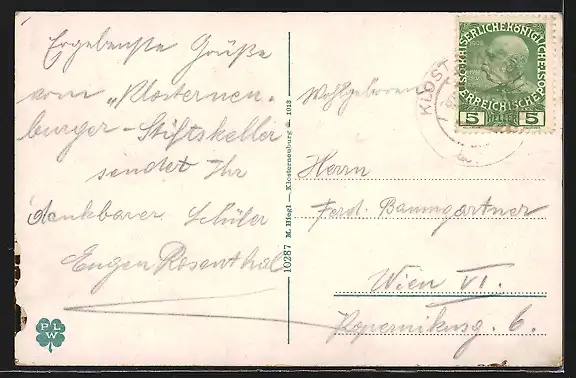 Ergebenste Grüße
vom "Klosterneu-
burger-Stiftskeller
sendet Ihr
dankbarer Schüler
Eugen Rosenthal
PLW
10287 M. Hiegl — Klosterneuburg a. 1913
KAISERLICHE KÖNIGLICHE
ÖSTERREICHISCHE POST
5 HELLER 5
KLOST
Wohlgeboren
Herrn
Ferd. Baumgartner
Wien VI.
Kopernikusg. 6.